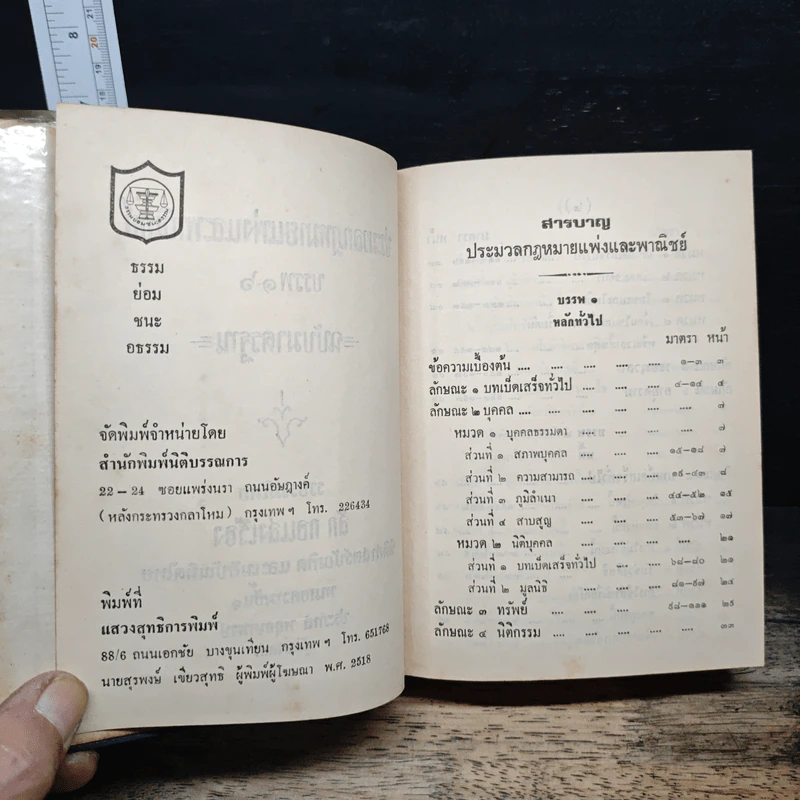 ธรรม
ย่อม
ชนะ
อธรรม
จัดพิมพ์จำหน่ายโดย
สำนักพิมพ์นิติบรรณการ
22 – 24 ซอยแพร่งนรา ถนนอัษฎางค์
(หลังกระทรวงกลาโหม) กรุงเทพ ฯ โทร. 226434
พิมพ์ที่
แสวงสุทธิการพิมพ์
88/6 ถนนเอกชัย บางขุนเทียน กรุงเทพ ฯ โทร. 651768
นายสุรพงษ์ เขียวสุทธิ ผู้พิมพ์ผู้โฆษณา พ.ศ. 2518
สารบาญ
ประมวลกฎหมายแพ่งและพาณิชย์
บรรพ ๑
หลักทั่วไป
มาตรา หน้า
ข้อความเบื้องต้น .... .... .... .... ๑-๓ ๓
ลักษณะ ๑ บทเบ็ดเสร็จทั่วไป .... .... .... ๔-๑๔ ๕
ลักษณะ ๒ บุคคล .... .... .... .... .... ๗
หมวด ๑ บุคคลธรรมดา .... .... .... .... ๗
ส่วนที่ ๑ สภาพบุคคล .... .... .... ๑๕-๑๘ ๗
ส่วนที่ ๒ ความสามารถ .... .... .... ๑๙-๔๓ ๘
ส่วนที่ ๓ ภูมิลำเนา .... .... .... ๔๔-๕๒ ๑๕
ส่วนที่ ๔ สาบสูญ .... .... .... ๕๓-๖๗ ๑๗
หมวด ๒ นิติบุคคล .... .... .... .... ๒๑
ส่วนที่ ๑ บทเบ็ดเสร็จทั่วไป .... .... ๖๘-๘๐ ๒๑
ส่วนที่ ๒ มูลนิธิ .... .... .... ๘๑-๙๗ ๒๔
ลักษณะ ๓ ทรัพย์ .... .... .... .... ๙๘-๑๑๑ ๒๙
ลักษณะ ๔ นิติกรรม .... .... .... .... .... ๓๓